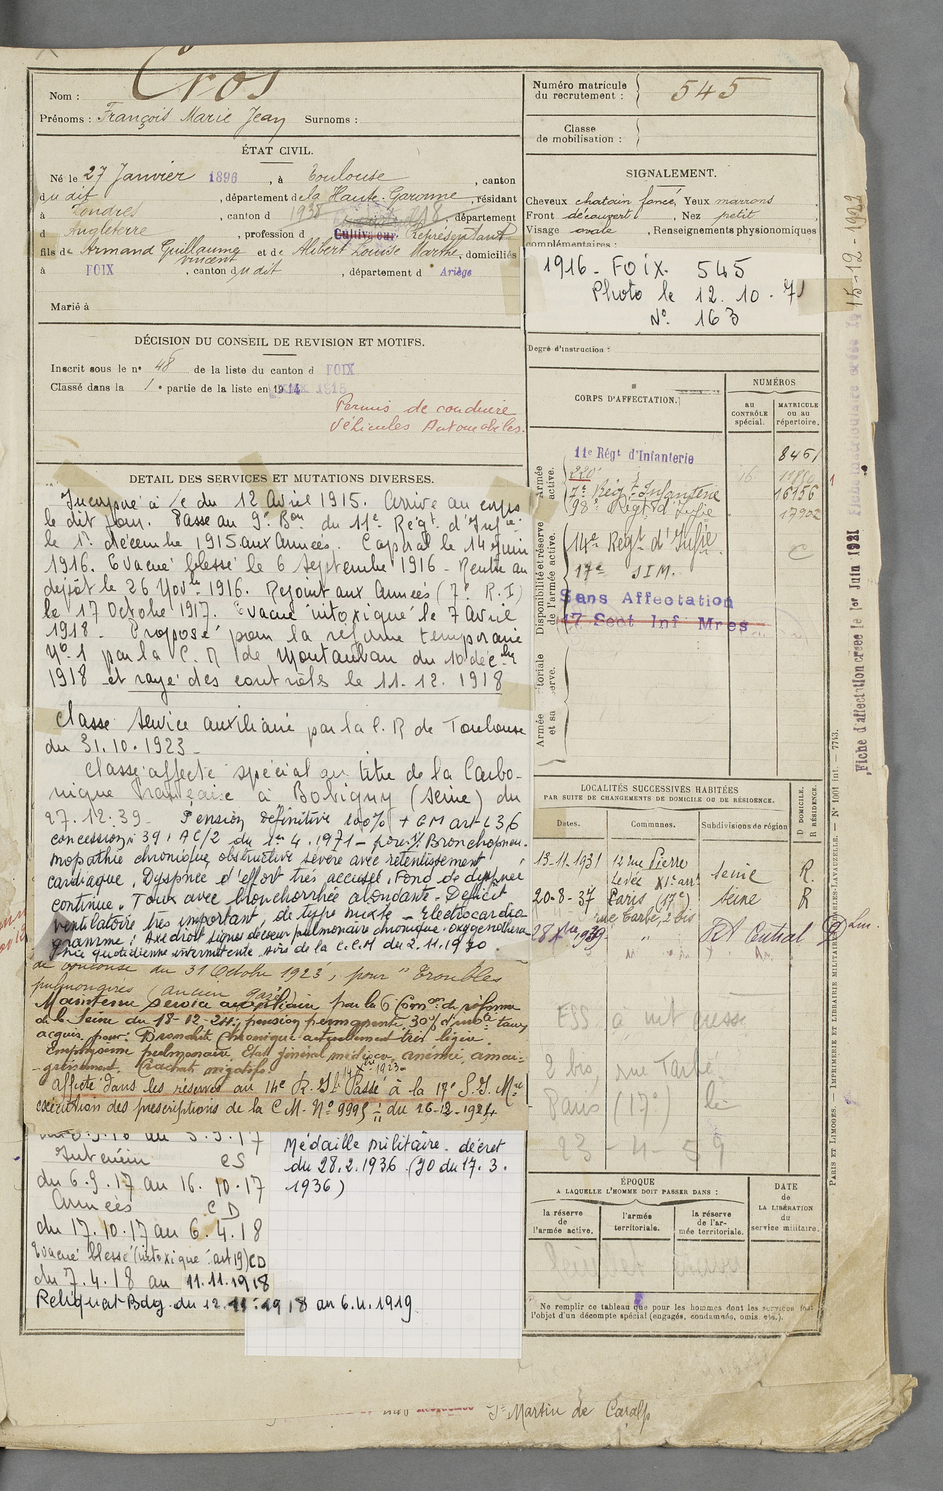 Nom : Cros
Prénoms : François Marie Jean Surnoms :
ÉTAT CIVIL.
Né le 27 Janvier 1896, à Toulouse, canton
du dit, département de la Haute-Garonne, résidant
à Londres, canton d 1938, département
d Angleterre, profession d Cultivateur Représentant
fils de Armand Guillaume Vincent et de Alibert Louise Marthe, domiciliés
à FOIX, canton du dit, département d Ariège
Marié à
DÉCISION DU CONSEIL DE REVISION ET MOTIFS.
Inscrit sous le no 48 de la liste du canton d FOIX
Classé dans la 1e partie de la liste en 1914
Permis de conduire
Véhicules Automobiles.
DÉTAIL DES SERVICES ET MUTATIONS DIVERSES.
Incorporé à c du 12 Avril 1915. Arrivé au corps
le dit jour. Passé au 9e Bon du 11e Régt d'Infie
le 1er décembre 1915 aux Armées. Caporal le 14 juin
1916. Evacué blessé le 6 septembre 1916 - Rentré au
dépôt le 26 Novbre 1916. Rejoint aux Armées (7e R.I)
le 17 Octobre 1917. Evacué intoxiqué le 7 Avril
1918 - Proposé pour la réforme temporaire
No 1 par la C. R de Montauban du 10 décbre
1918 et rayé des contrôles le 11.12.1918
Classé service auxiliaire par la C. R de Toulouse
du 31.10.1923 -
Classé affecté spécial au titre de la Carbo-
nique Française à Bobigny (Seine) du
27.12.39. Pension définitive 100% + GM art L 36
concession 39 AC/2 du 1er 4.1971 - pour 1/ Bronchopneu-
mopathie chronique obstructive sévère avec retentissement
cardiaque. Dyspnée d'effort très accusée. Fond de dyspnée
continue. Toux avec bronchorrhée abondante - Déficit
ventilatoire très important, de type mixte - Electrocardio
gramme : Axe droit signes de cœur pulmonaire chronique. Oxygénothéra
pie quotidienne intermittente. Avis de la C.C.M du 2.11.1970
de Toulouse du 31 Octobre 1923, pour "Troubles
pulmonaires (ancien gazé)
Maintenu service auxiliaire par la 6e Comon de réforme
de la Seine du 18-12-24; pension permanente 30%
acquis pour: Bronchite chronique actuellement très légère.
Emphysème pulmonaire. Etat général médiocre, anémie, amai-
grissement. Crachats négatifs.
Affecté dans les réserves au 14e R.I. Passé à la 17e S.I. Mre
exécution des prescriptions de la C.M. No 9995 du 26-12-1924
au 5.9.17
Intérieur CS
du 6.9.17 au 16.10.17
Armées CD
du 17.10.17 au 6.4.18
Evacué blessé (intoxiqué : art 19) CD
du 7.4.18 au 11.11.1918
Reliquat Bdg. du 12.11.1918 au 6.4.1919.
Médaille militaire. décret
du 28.2.1936 (JO du 17.3.
1936)
Numéro matricule du recrutement : 545
Classe de mobilisation :
SIGNALEMENT.
Cheveux chatain foncé, Yeux marrons
Front découvert, Nez petit
Visage ovale, Renseignements physionomiques
complémentaires :
1916 - FOIX. 545
Photo le 12.10.71
No 163
Degré d'instruction :
CORPS D'AFFECTATION.
NUMÉROS
AU CONTRÔLE spécial.
MATRICULE ou au répertoire.
Armée active.
11e Régt d'Infanterie 8461
220
7e Régt Infanterie 16156
98e Régt d'Infie 17902
Disponibilité et réserve de l'armée active.
14e Régt d'Infie
17e SIM.
Sans Affectation
17 Sect Inf Mres
Armée territoriale et sa réserve.
LOCALITÉS SUCCESSIVES HABITÉES
PAR SUITE DE CHANGEMENTS DE DOMICILE OU DE RÉSIDENCE.
Dates. Communes. Subdivisions de région
D DOMICILE. R RÉSIDENCE.
13.11.1931 12 rue Pierre Levée XIe arr Seine R.
20-8-37 Paris (17e) rue Tarbé, 2 bis Seine R
Rt Central D
2 bis, rue Tarbé
Paris (17e)
23-4-59
ÉPOQUE
A LAQUELLE L'HOMME DOIT PASSER DANS :
la réserve de l'armée active.
l'armée territoriale.
la réserve de l'armée territoriale.
DATE DE LA LIBÉRATION du service militaire.
Ne remplir ce tableau que pour les hommes dont les services font
l'objet d'un décompte spécial (engagés, condamnés, omis, etc.).
PARIS ET LIMOGES. — IMPRIMERIE ET LIBRAIRIE MILITAIRES CHARLES-LAVAUZELLE. — No 1001 Int. — 7743.
Fiche d'affectation créée le 1er Juin 1921
15-12-1922
St Martin de Caralp